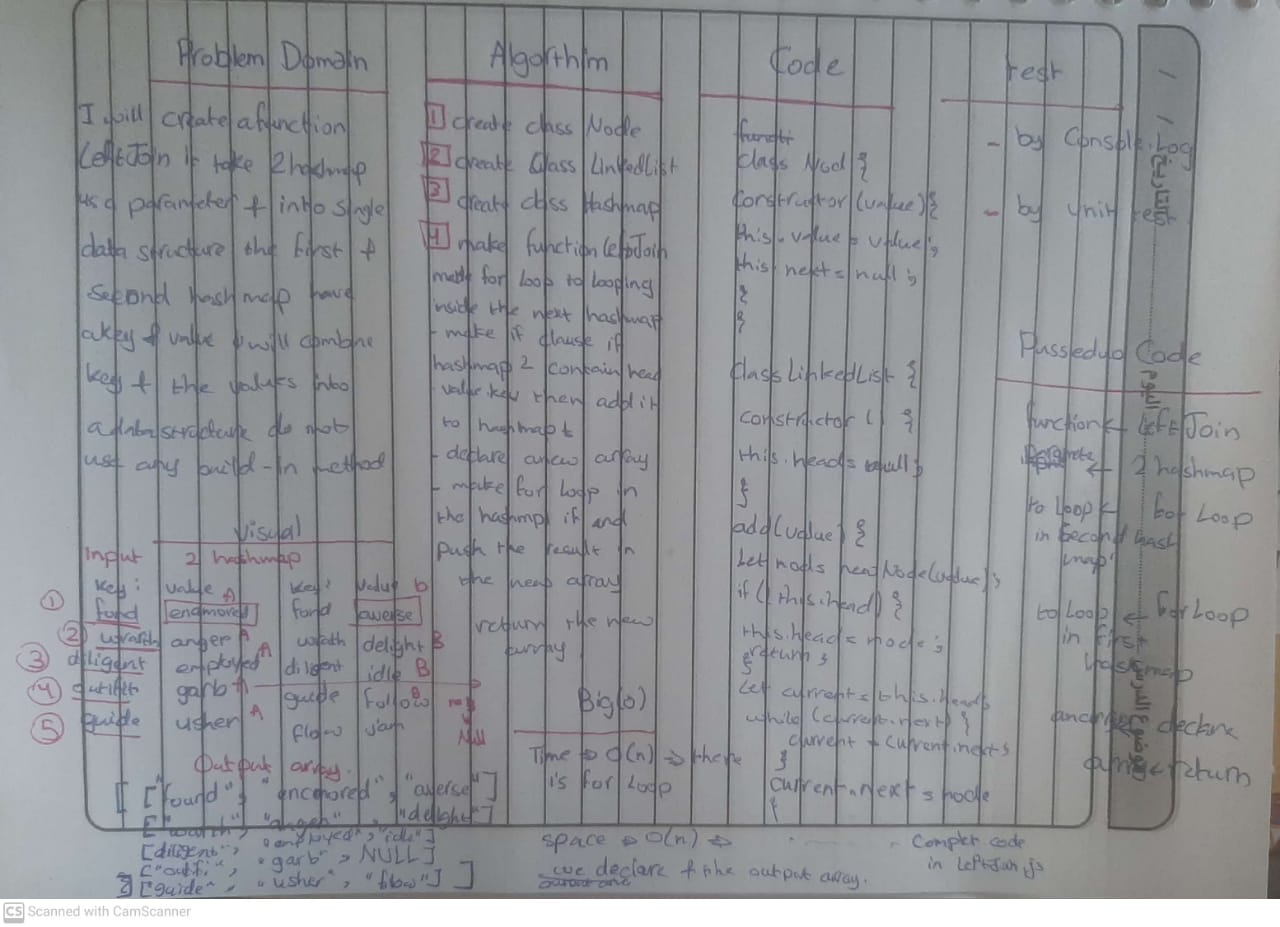 Problem Domain
I will create a function
LeftJoin it take 2 hashmap
as a parameter & into single
data structure the first &
second hashmap have
a key & value I will combine
key & the values into
a data structure do not
use any build-in method
Visual
Input 2 hashmap
key: value A key: value b
① fond enamored fond averse
② wrath anger A wrath delight B
③ diligent employed A diligent idle B
④ outfit garb A guide follow B
⑤ guide usher A flow jam
Null
Output array.
[ ["found", "encmored", "averse"]
["warth", "anger", "delight"]
[diligent", "employed", "idle"]
["outfi", "garb", NULL]
[guide", "usher", "flow"] ]
Algorthim
1 create class Node
2 create Class LinkedList
3 create class Hashmap
4 make function leftJoin
made for loop to looping
inside the next hashmap
- make if clause if
hashmap 2 contain head
value.key then add it
to hashmap 1
- declare a new array
- make for loop in
the hashmp1 if and
push the result in
the new array
return the new
array
Big(o)
Time → O(n) → there
is for loop
space → O(n) →
we declare the output array.
Code
functi
class Nod {
constructor (value){
this.value = value;
this.next = null;
}
}
class LinkedList {
constructor () {
this.head = null;
}
add(value) {
Let node = new Node(value);
if (!this.head) {
this.head = node;
return;
}
Let current = this.head;
while (current.next) {
current = current.next;
}
current.next = node
}
Complet code
in LeftJoin.js
test
- by Console.Log
- by unit te
Pussedyo Code
function ← left Join
← 2 hashmap
to loop ← for Loop
in second hash
map
to Loop ← for Loop
in first
hashmap
← declare
← return
التاريخ / /
اليوم
موضوع الدرس
CS Scanned with CamScanner